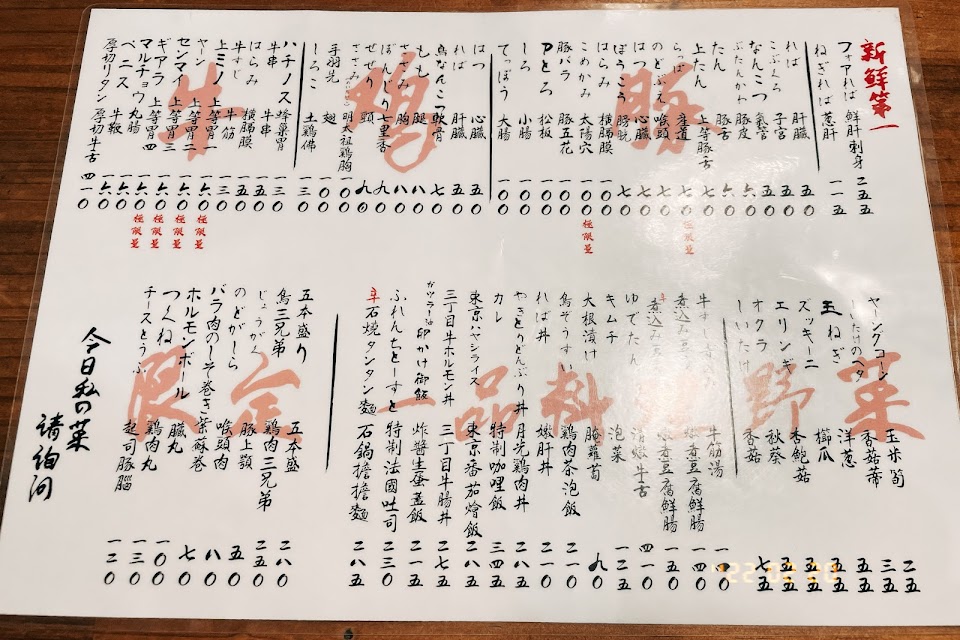 新鮮第一
フォアれば 鮮肝刺身 二五五
ねぎれば 蔥肝 一一五
豚
れば 肝臓 五〇
こぶくろ 子宮 五〇
なんこつ 氣管 五〇
ぶたんかわ 豚皮 六〇
たん 豚舌 六〇
上たん 上等豚舌 七〇
らっぱ 産道 七〇 極限量
のどぶえ 喉頭 七〇
はつ 心臓 七〇
ぼうこう 膀胱 七〇
はらみ 横膈膜 一〇〇
こめかみ 太陽穴 一〇〇 極限量
豚バラ 豚五花 一〇〇
Pとろ 松板 一〇〇
しろ 小腸 一〇〇
てっぽう 大腸 一〇〇
鶏
はつ 心臓 五〇
れば 肝臓 五〇
鳥なんこつ 軟骨 七〇
もも 腿 八〇
ささみ 胸 八〇
ぼんじり 七里香 九〇
せせり 頸 九〇
ささみ 明太祖鶏胸 一〇〇
手羽先 翅 一〇〇
しろこ 土鶏佛 一〇〇
牛
ハチノス 蜂巢胃 一三〇
牛串 牛串 一五〇
はらみ 横膈膜 一五〇
牛すじ 牛筋 一三〇
上ミノ 上等胃一 一六〇 極限量
ヤーン 上等胃二 一六〇 極限量
センマイ 上等胃三 一六〇 極限量
ギアラ 上等胃四 一六〇 極限量
マルチョウ 丸腸 一六〇
ペニス 牛鞭 一六〇
厚切リタン 厚切牛舌 四一〇
野菜
ヤーングコーン 玉米筍 二五
しいたけのヘタ 香菇蒂 三五
玉ねぎ 洋蔥 五五
ズッキーニ 櫛瓜 五五
エリンギ 杏鮑菇 五五
オクラ 秋葵 五五
しいたけ 香菇 七五
一品料理
牛すーぷ 牛筋湯 一〇〇
煮込み豆腐 味噌煮豆腐鮮腸 一四〇
辛 煮込み豆腐 辣煮豆腐鮮腸 一五〇
ゆでたん 清燉牛舌 四一〇
キムチ 泡菜 一二五
大根漬け 醃蘿蔔 九〇
鳥ぞうすい 鶏肉茶泡飯 二一〇
れば丼 嫩肝丼 二一〇
やきとりどんぶり丼 月光鶏肉丼 二八五
カレー 特制咖哩飯 三四五
東京ハヤシライス 東京番茄燴飯 二八五
三丁目牛ホルモン丼 三丁目牛腸丼 二七五
ガツラー油卵かけ御飯 炸醬生蛋蓋飯 二一五
ふれんちとーすと 特制法國吐司 二三〇
辛 石焼タンタン麺 石鍋擔擔麵 二八五
限定
五本盛り 五本盛 二八〇
鳥三兄弟 鶏肉三兄弟 二五〇
じょうがく 豚上顎 五〇
のどがしら 喉頭肉 八〇
バラ肉のしそ巻き 紫蘇巻 七〇
ホルモンボール 臓丸 一〇〇
つくね 鶏肉丸 一三〇
チーズとうふ 起司豚腦 一二〇
今日私の菜
請詢問